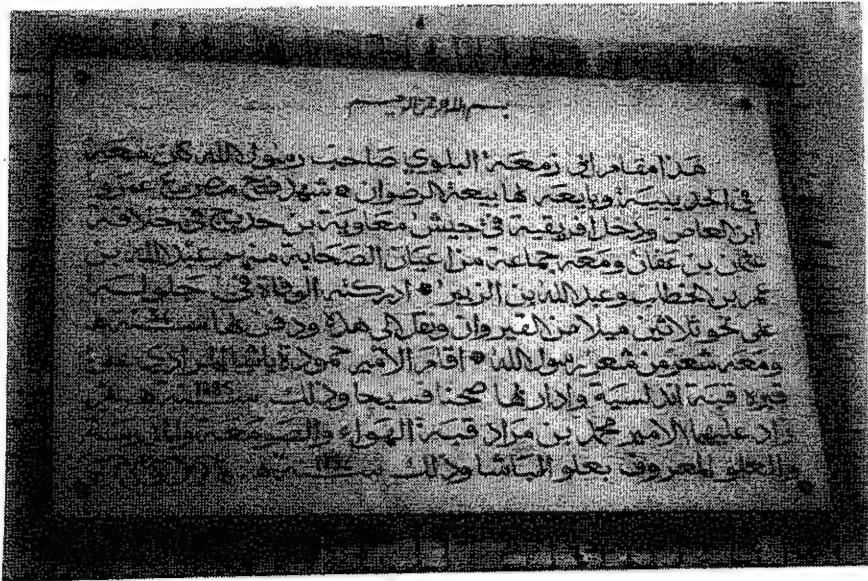 بسم الله الرحمن الرحيم
هذا مقام ابي زمعة البلوي صاحب رسول الله كان معه
في الحديبية وبايعه بها بيعة الرضوان • شهد فتح مصر مع عمرو
ابن العاص ودخل افريقية في جيش معاوية بن حديج في خلافة
عثمن بن عفان ومعه جماعة من اعيان الصحابة منهم عبد الله بن
عمر بن الخطاب وعبد الله بن الزبير • ادركته الوفاة في جلولة
على نحو ثلاثين ميلا من القيروان ونقل الى هذه ودفن بها سنة 34 هـ
ومعه شعر من شعر رسول الله • اقام الامير حمودة باشا المرادي على
قبره قبة اندلسية وادار لها صحنا فسيحا وذلك سنة 1085 هـ ثم
زاد عليها الامير محمد بن مراد قبة الهواء والصومعة والمدرسة
والعلو المعروف بعلو الباشا وذلك سنة هـ